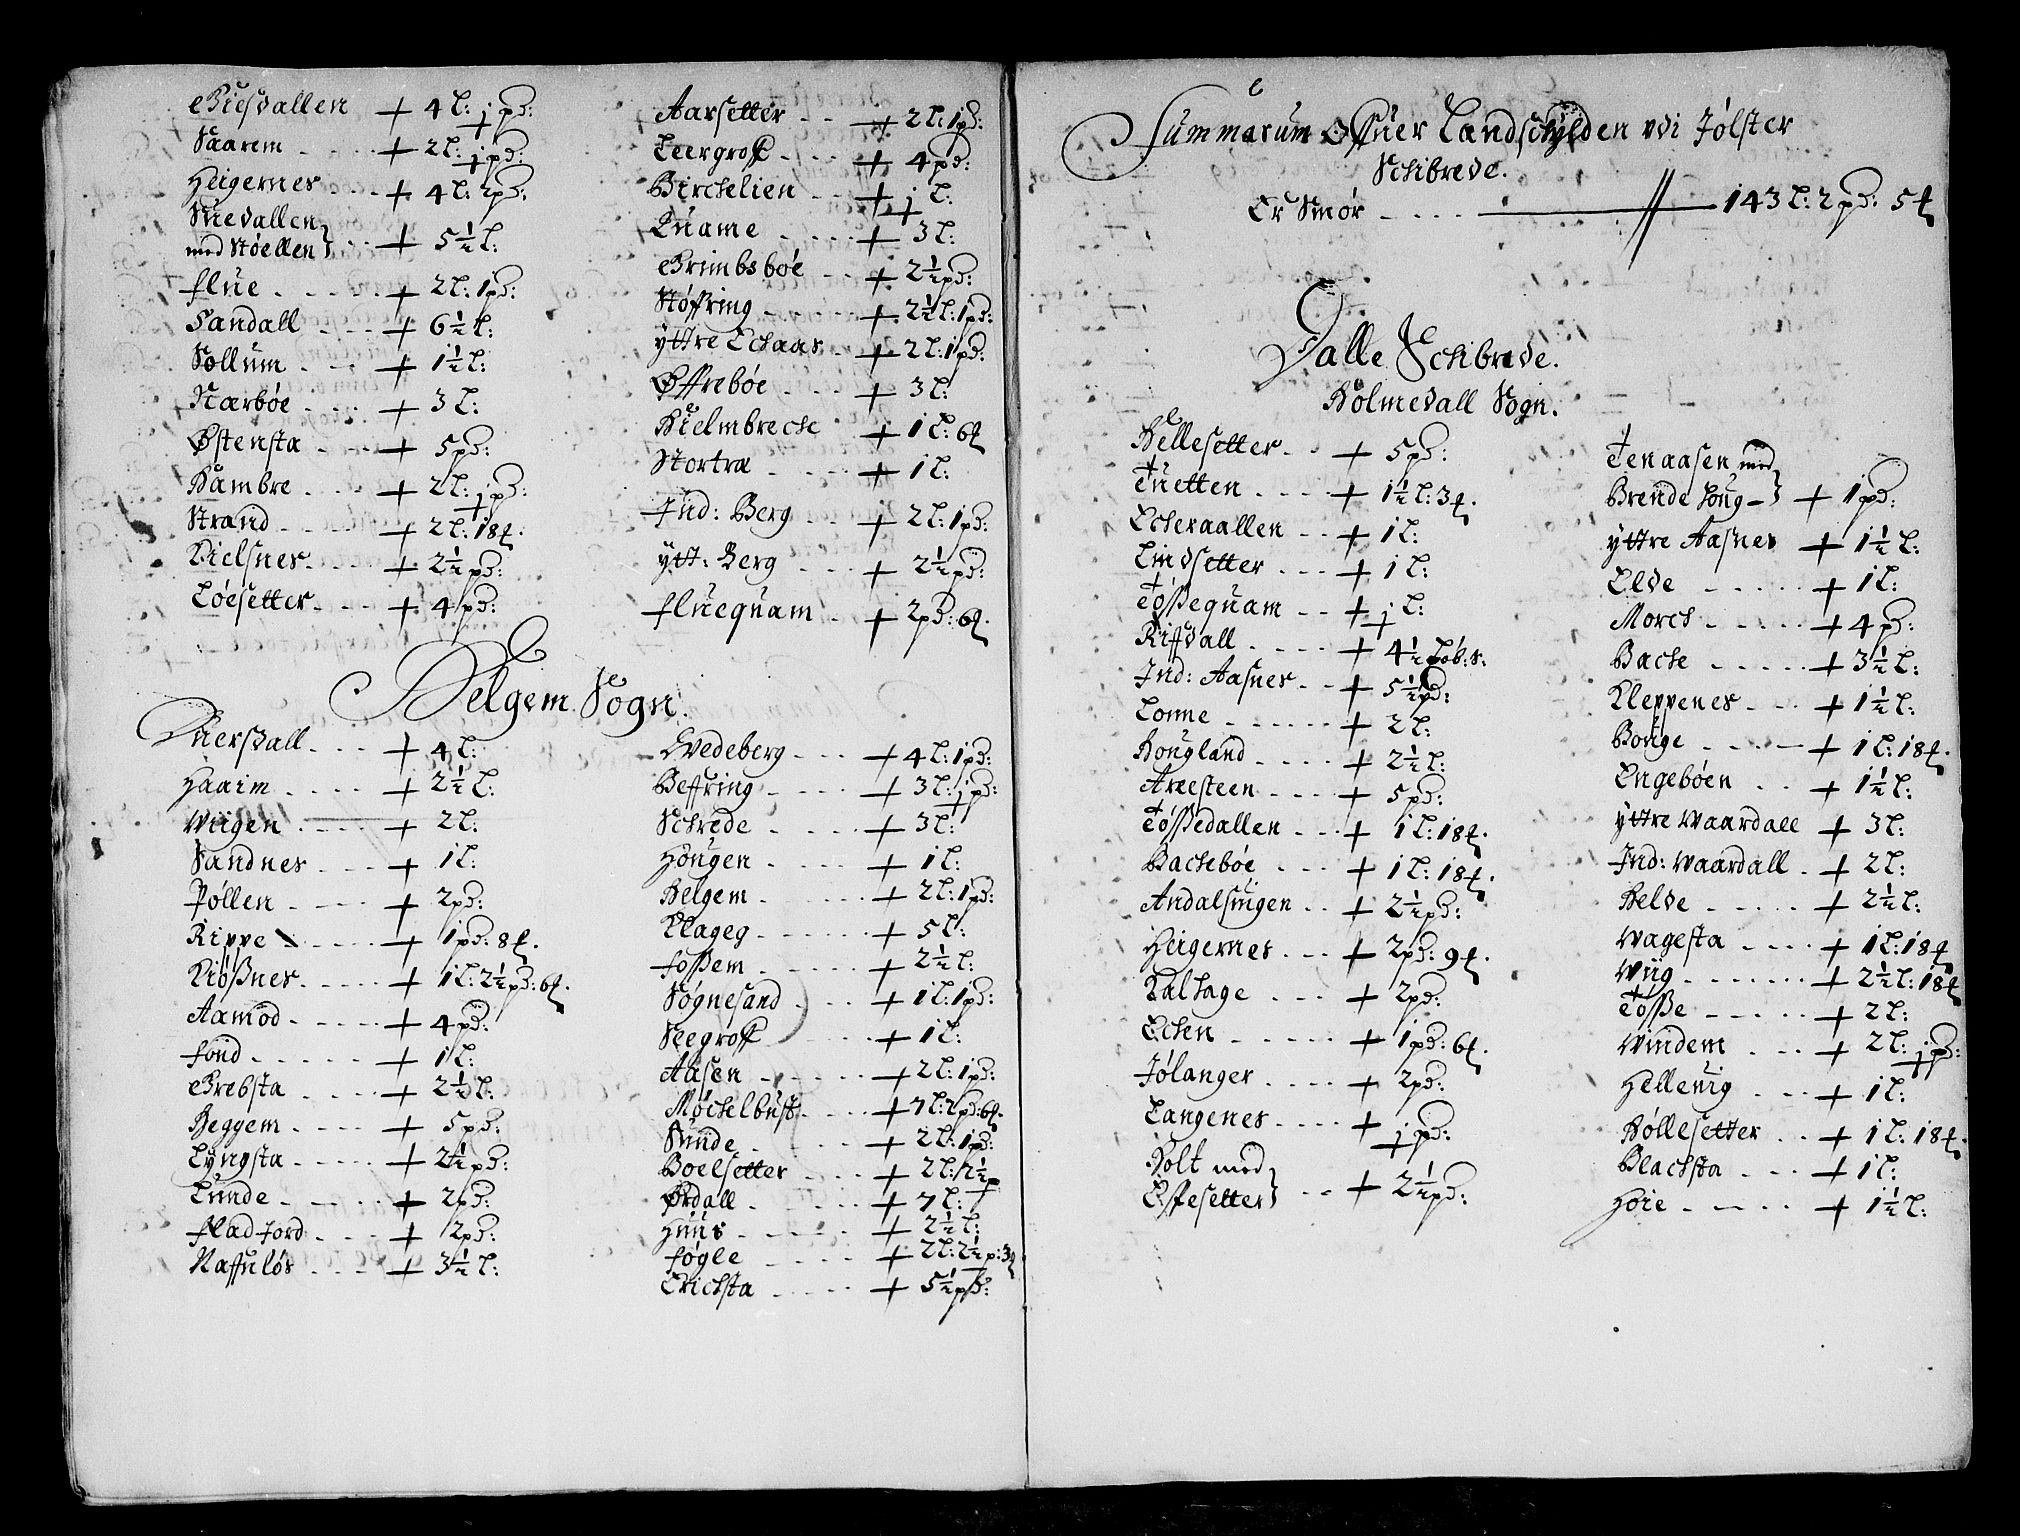 Giesdallen + 4 l: j pd:
Saarem + 2 l: j pd:
Heigernes + 4 l: 2 pd:
Snedallen
med Støellen + 5½ l:
Flue + 2 l: 1 pd:
Sandall + 6½ l:
Sollum + 1½ l:
Nærbøe + 3 l:
Østensta + 5 pd:
Hambre + 2 l: j pd:
Strand + 2 l: 18 ꝉ.
Kielsnes + 2½ pd:
Løesetter + 4 pd:
Aarsetter + 2 l: 1 pd:
Leergroff + 4 pd:
Birchelien + j l:
Quame + 3 l:
Grimbsbøe + 2½ pd:
Støffring + 2½ l: 1 pd:
yttre Echaas + 2 l: 1 pd:
Øffrebøe + 3 l:
Hielmbreche + 1 l: 6 ꝉ
Stortræ + 1 l:
Ind: Berg + 2 l: 1 pd:
ytt: Berg + 2½ pd:
Fluequam + 2 pd: 6 ꝉ.
Helgem Sogn.
Huersdall + 4 l:
Haaim + 2½ l:
Wiigen + 2 l:
Sandnes + 1 l:
Pøllen + 2 pd:
Rippe + 1 pd: 8 ꝉ.
Kiøssnes + 1 l: 2½ pd: 6 ꝉ.
Aamod + 4 pd:
Fond + 1 l:
Grebsta + 2½ l:
Heggem + 5 pd:
Lyngsta + 2½ pd:
Lunde + 2 pd:
Fladjord + 2 pd:
Raffnløs + 3½ l:
Wedeberg + 4 l: 1 pd:
Beffring + 3 l: j pd:
Schrede + 3 l:
Hougen + 1 l:
Helgem + 2 l: 1 pd:
Klageg + 5 l:
Fossem + 2½ l:
Søgnesand + 1 l: 1 pd:
Seegroff + 1 l:
Aasen + 2 l: 1 pd:
Møchelbust + 7 l: 2 pd: 6 ꝉ.
Sunde + 2 l: 1 pd:
Boelsetter + 2 l: 2½ p
Ørdall + 7 l:
Huus + 2½ l:
Føgle + 2 l: 2½ p: 3 ꝉ
Erichsta + 5½ pd:
Summarum Offuer Landschylden vdi Jølster
Schibrede.
Er Smør 143 l: 2 pd: 5 ꝉ
Dalle Schibrede.
Holmedall Sogn.
Hellesetter + 5 pd:
Tuetten + 1½ l: 3 ꝉ.
Echeraallen + 1 l:
Lindsetter + 1 l:
Tøssequam + j l:
Riffdall + 4½ Løb: s:
Ind: Aasnes + 5½ pd:
Lonne + 2 l:
Hougland + 2½ l:
Areesteen + 5 pd:
Tøssedallen + 1 l: 18 ꝉ.
Bachebøe + 1 l: 18 ꝉ.
Andalsuigen + 2½ pd:
Heigernes + 2 pd: 9 ꝉ.
Kalhage + 2 pd:
Echen + 1 pd: 6 ꝉ.
Jølanger + 2 pd:
Langenes + j pd:
Holt med
Espesetter + 2½ pd:
Tenaasen med
Brendehoug + 1 pd:
yttre Aasnes + 1½ l:
Elde + 1 l:
Morch + 4 pd:
Bache + 3½ l:
Kleppenes + 1½ l:
Bouge + 1 l: 18 ꝉ.
Engebøen + 1½ l:
yttre Waardall + 3 l:
Ind: Waardall + 2 l:
Helde + 2½ l:
Wagesta + 1 l: 18 ꝉ
Wiig + 2½ l: 18 ꝉ
Tøsse + 2 l:
Windem + 2 l: j pd:
Helleuig + 1 l:
Høllesetter + 1 l: 18 ꝉ.
Blachsta + 1 l:
Høie + 1½ l: